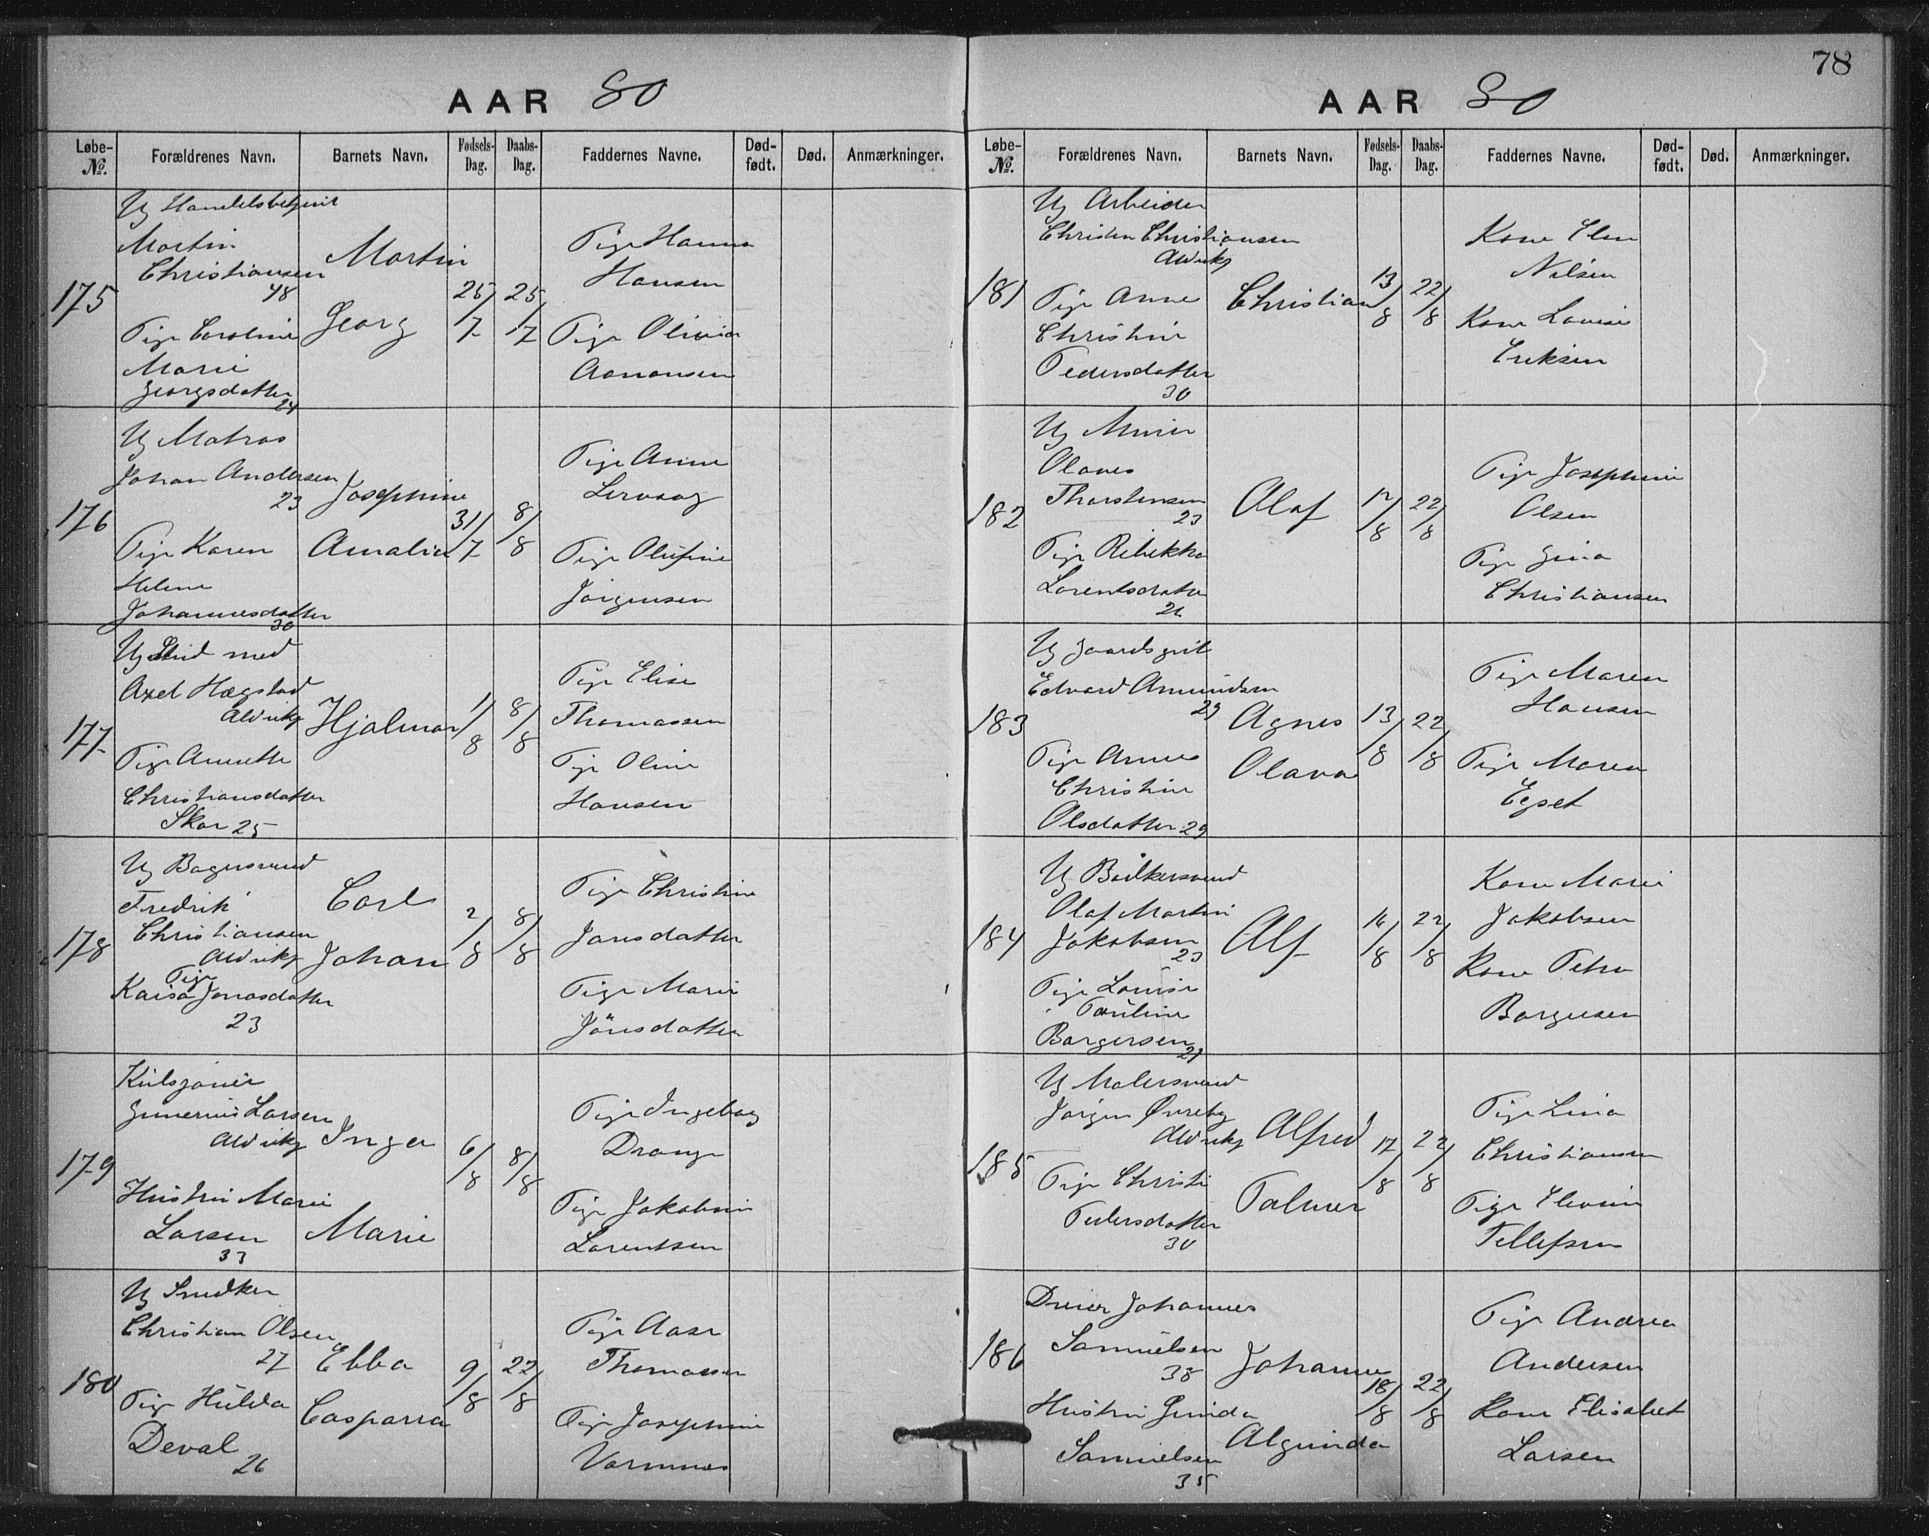 AAR 80
Løbe-No. Forældrenes Navn. Barnets Navn. Fødsels-Dag. Daabs-Dag. Faddernes Navne. Død-født. Død. Anmærkninger.
175
Ug Handelsbetjent
Martin
Christiansen
48
Pige Caroline
Marie
Georgsdatter
24
Martin
Georg
25/7
25/7
Pige Hanna
Hansen
Pige Olivia
Aanonsen
176
Ug Matros
Johan Andersen
23
Pige Karen
Helene
Johannesdatter
30
Josephine
Amalie
31/7
8/8
Pige Anne
Lervaag
Pige Olufine
Jörgensen
177
Ug med
Axel Hægstad
Pige Annette
Christiansdatter
Skar 25
Hjalmar
1/8
8/8
Pige Elise
Thomassen
Pige Oline
Hansen
178
Ug Bagersvend
Fredrik
Christiansen
Pige
Kaisa Jonasdatter
23
Carl
Johan
2/8
8/8
Pige Christine
Jonsdatter
Pige Marie
Jönsdatter
179
Gunerius Larsen
Hustru Marie
Larsen
33
Inga
Marie
6/8
8/8
Pige Ingeborg
Drange
Pige Jakobine
Lorentsen
180
Ug Snedker
Christian Olsen
27
Pige Hulda
Deval
26
Ebba
Casparra
9/8
22/8
Pige Aase
Thomassen
Pige Josephine
Varmnes
78
AAR 80
Løbe-No. Forældrenes Navn. Barnets Navn. Fødsels-Dag. Daabs-Dag. Faddernes Navne. Død-født. Død. Anmærkninger.
181
Ug Arbeider
Christen Christiansen
Pige Anne
Christine
Pedersdatter
30
Christian
13/8
22/8
Kone Elen
Nilsen
Kone Lovise
Eriksen
182
Ug Murer
Olaves
Thorstensen
23
Pige Rebekka
Lorentsdatter
Olaf
17/8
22/8
Pige Josephine
Olsen
Pige Gina
Christiansen
183
Ug Gaardsgut
Edvard Amundsen
29
Pige Annes
Christine
Olsdatter 29
Agnes
Olava
13/8
22/8
Pige Maren
Hansen
Pige Maren
Egset
184
Ug Bödkersvend
Olaf Martin
Jakobsen
23
Pige Louise
Pauline
Borgersen
Alf
16/8
22/8
Kone Marie
Jakobsen
Kone Petra
Borgersen
185
Ug Malersvend
Jörgen Øvreby
Pige Christi
Pedersdatter
30
Alfred
Palmer
17/8
22/8
Pige Lina
Christiansen
Pige Elevine
Tellefsen
186
Dreier Johannes
Samuelsen
38
Hustru Gunda
Samuelsen
35
Johanne
Algunda
18/8
22/8
Pige Andrea
Andersen
Kone Elisabet
Larsen